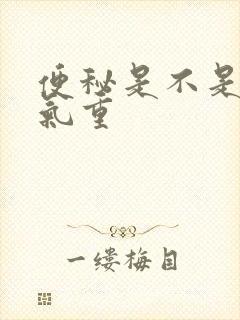 便秘是不是
氣重
一缕梅目